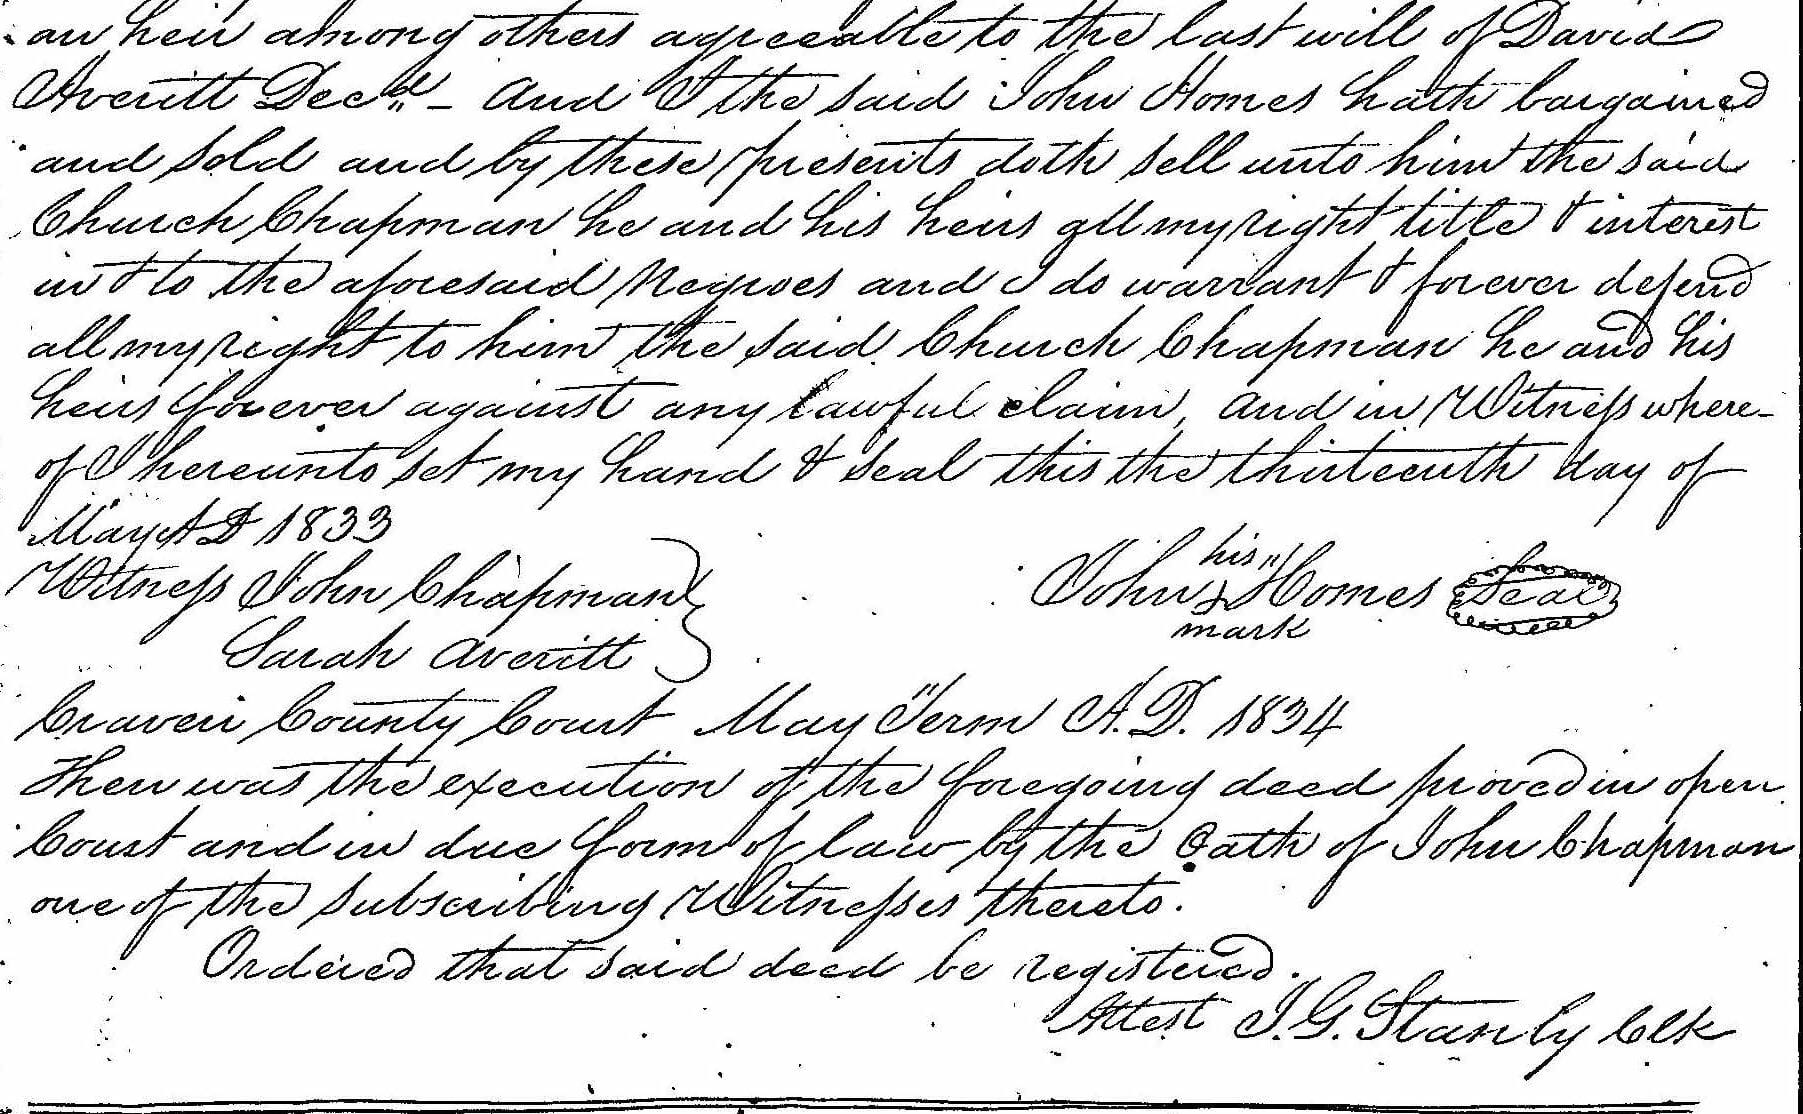 an heir among others agreeable to the last will of David
Averitt Decd. - And I the said John Homes hath bargained
and sold and by these presents doth sell unto him the said
Church Chapman he and his heirs all my right title & interest
in & to the aforesaid Negroes and I do warrant & forever defend
all my right to him the said Church Chapman he and his
heirs forever against any lawful claim, and in Witness where-
of I hereunto set my hand & seal this the thirteenth day of
May A D 1833
Witness John Chapman
Sarah Averitt
his
John X Homes Seal
mark
Craven County Court May Term A.D. 1834
Then was the execution of the foregoing deed proved in open
Court and in due form of law by the Oath of John Chapman
one of the subscribing Witnesses thereto.
Ordered that said deed be registered.
Attest J. G. Stanly Clk